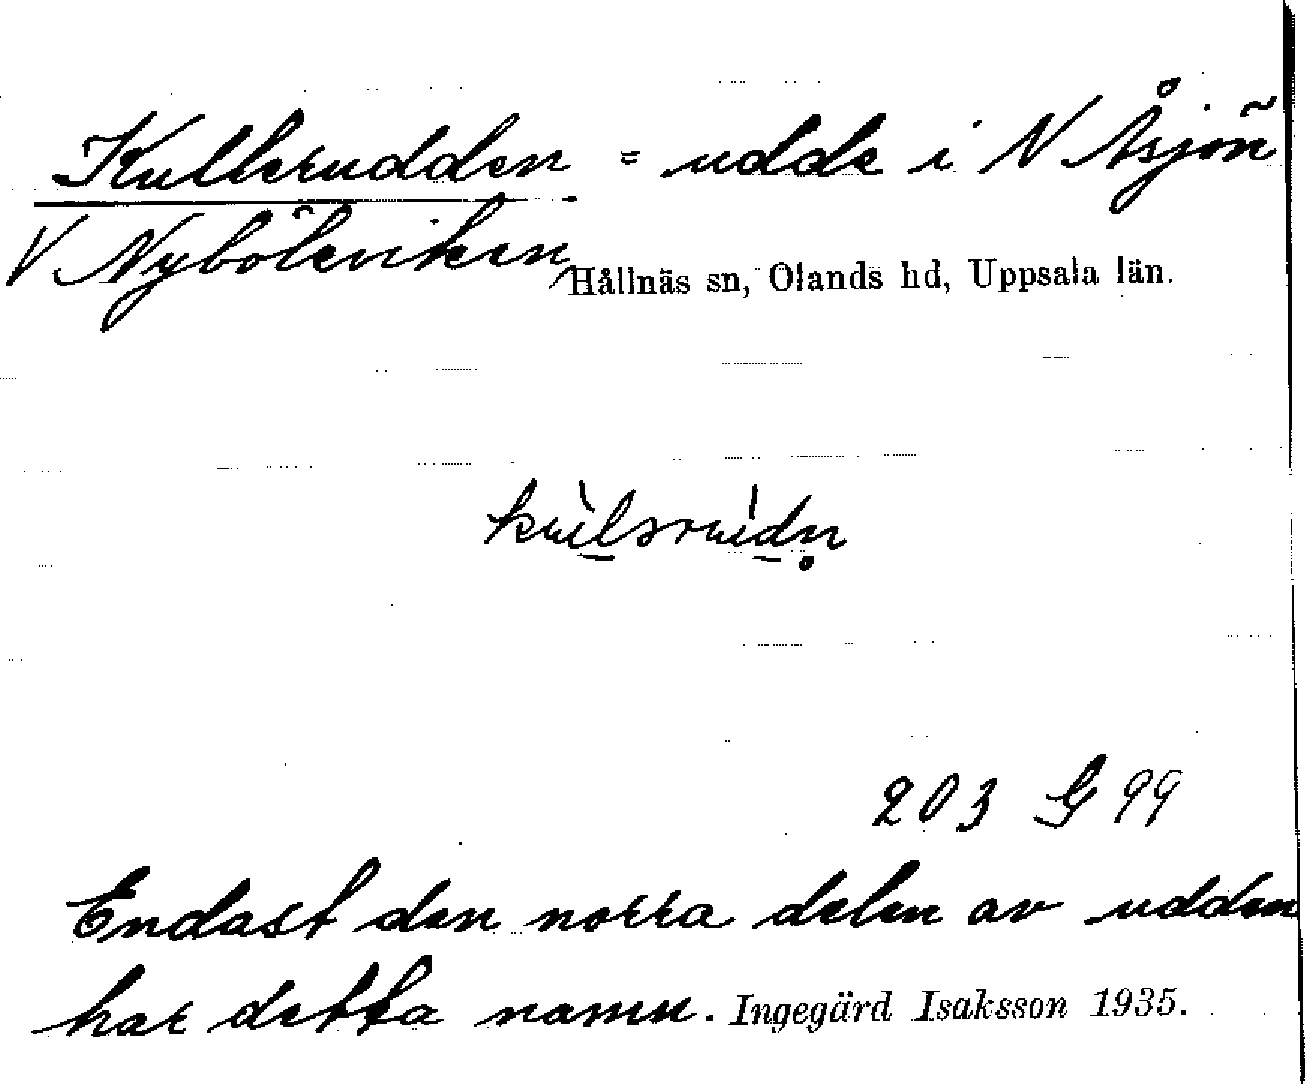 Kullerudden = udde i N Åsjön
V Nyböleviken,
Hållnäs sn, Olands hd, Uppsala län.
203 G 99
Endast den norra delen av udden
har detta namn. Ingegärd Isaksson 1935.